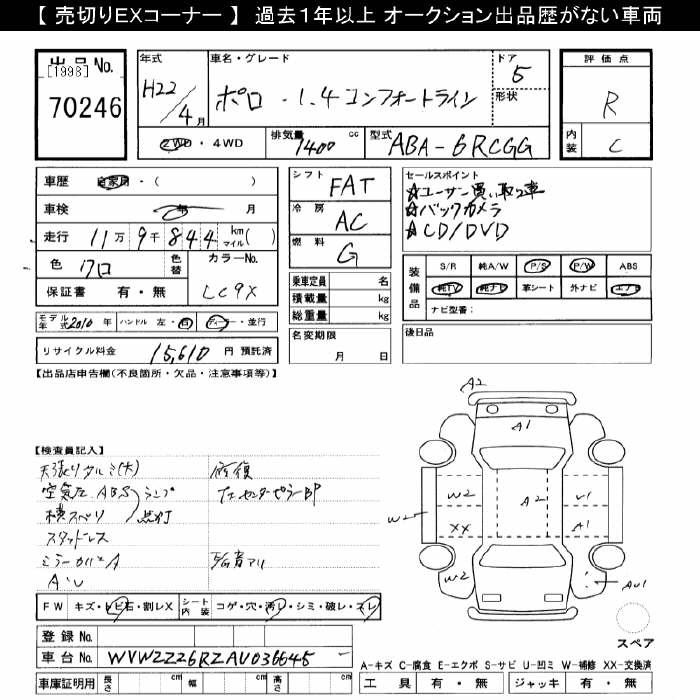 【 売切りEXコーナー 】 過去1年以上 オークション出品歴がない車両
出品 No.
[1998]
70246
年式
H22/4月
車名・グレード
ポロ ・1.4 コンフォートライン
ドア
5
形状
2WD ・ 4WD
排気量
1400 cc
型式
ABA-6RCGG
評価点
R
内装
C
車歴
自家用 ・( )
車検
年 月
走行
11万 9千 844 km マイル( )
色
クロ
色替
カラーNo.
LC9X
保証書 有 ・ 無
シフト
FAT
冷房
AC
燃料
G
セールスポイント
☆ユーザー買い取り車
☆バックカメラ
☆CD/DVD
乗車定員 名
積載量 kg
総重量 kg
装備品
S/R 純A/W P/S P/W ABS
純TV 純ナビ 革シート 外ナビ エアB
ナビ型番:
モデル年式 2010 年
ハンドル 左・右
ディーラー・並行
リサイクル料金 15,610 円 預託済
名変期限
月 日
後日品
【出品店申告欄(不良箇所・欠品・注意事項等)】
【検査員記入】
天張りタルミ(大)
空気圧 ABS ランプ
横スベリ 点灯
スタッドレス
ミラーカバーA
A・U
修復
センターピラーBP
A2
A1
W2
W2
A2
U1
XX
A1
W2
AU1
スペア
FW キズ・トビ石・割レX
シート内装 コゲ・穴・汚レ・シミ・破レ・スレ
登録 No.
車台 No. WVWZZZ6RZAU036645
車庫証明用 長さ cm 幅 cm 高さ cm
A-キズ C-腐食 E-エクボ S-サビ U-凹ミ W-補修 XX-交換済
工具 有 ・ 無 ジャッキ 有 ・ 無